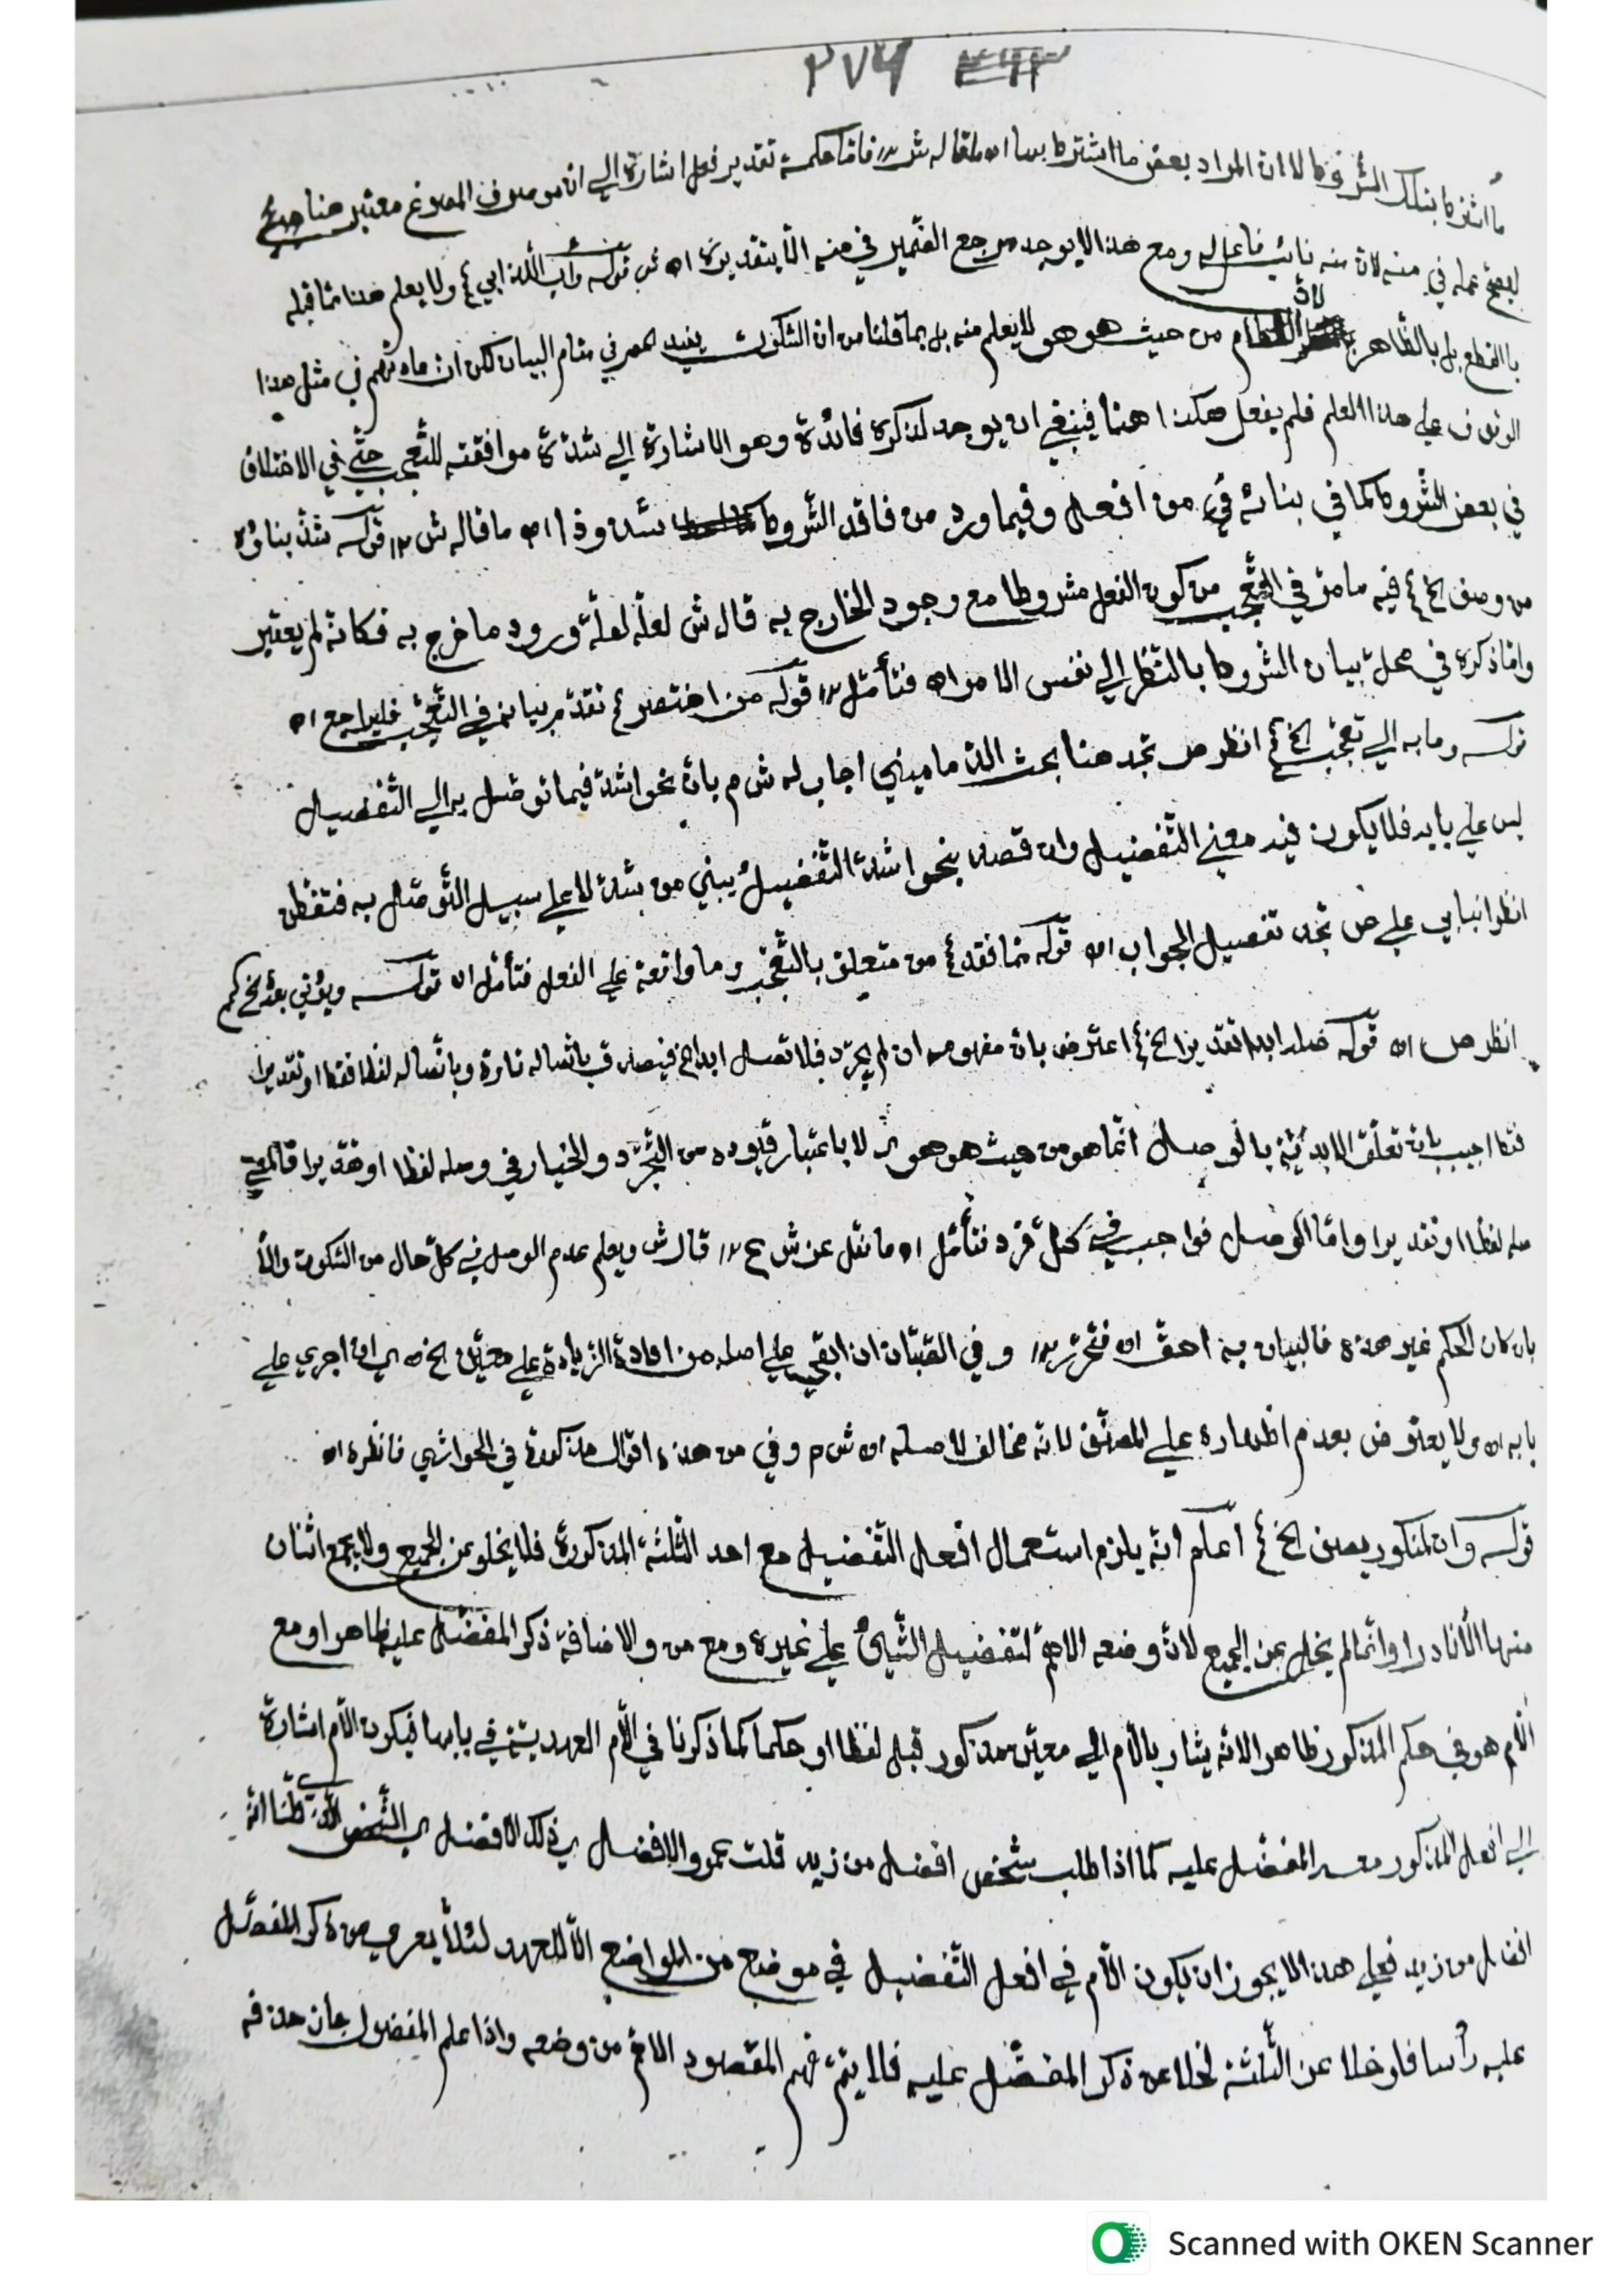 ٢٧٦
ما اشترط بتلك الشروط لا ان المراد بعض ما اشترط بها اه ما قاله ش ١٢ فاما حكمة تقدير فعل اشارة الى ان موصوف المصوغ معتبر هنا
ليصح عمله في منه لان منه نائب فاعله ومع هذا لا يوجد مرجع الضمير في منه الا بتقديره اه قوله وأب اللذ ابي ع ولا يعلم هذا مما قبله
بالقطع بل بالظاهر لان من حيث هو هو لا يعلم منه بل بما قلنا من ان السكوت يفيد الحصر في مقام البيان لكن في مثل هذا
الوقوف على هذا العلم فلم يفعل هكذا هنا فينبغي ان يوجد لذكره فائدة وهو الاشارة الى شدة موافقته للتعجب حتى في الاختلاف
في بعض الشروط كما في بنائه من افعل وفيما ورد من فاقد الشروط شذوذا اه ما قاله ش ١٢ قوله شذ بناؤه
من وصف الخ ع فيه ما مر في التعجب من كون الفعل مشروطا مع وجود الخارج به قال ش لعله لعلة ورود ما خرج به فكانه لم يعتبر
وانما ذكره في محل بيان الشروط بالنظر الى نفس الامر اه فتأمل ١٢ قوله من اختصر ع تقدم بيانه في التعجب فليراجع اه
قوله وما به الى تعجب الخ ع انظر ص تجد هنا بحث الدماميني اجاب له ش م بان نحو اشد فيما توصل به الى التفضيل
ليس على بابه فلا يكون فيه معنى التفضيل وان قصد بنحو اشد التفضيل يبني من شد لا على سبيل التوصل به فتفطن
انظر انبابي على ص تجد تفصيل الجواب اه قوله مما فقد ع من متعلق بالتعجب وما واقعة على الفعل فتأمل اه قوله ويؤتى بعد الخ
انظر ص اه قوله صله ابدا تقديرا الخ ع اعترض بان مفهومه ان لم يجرد فلا تصل ابدا الخ فيصدق باتصاله تارة وباتصاله لفظا فقط او تقديرا
فقط اجيب بان تعلق الابدية بالوصل انما هو من حيث هو هو لا باعتبار قيوده من التجرد والخيار في وصله لفظا او تقديرا فالمعنى
صله لفظا او تقديرا واما الوصل فواجب في كل فرد فتأمل اه ما نقل عن ش ع ١٢ قال ش ويعلم عدم الوصل في كل حال من السكوت والا
بان كان الحكم غير هذه فالبيان به احق اه فتحرر ١٢ وفي الصبان ان ابقى على اصله من افادة الزيادة على معين الخ اي ان اجري على
بابه اه ولا يعترض بعدم اظهاره على المصنف لانه مخالف لاصله اه ش م وفي من هذه اقوال مذكورة في الحواشي فانظره اه
قوله وان لمنكور يضف الخ ع اعلم انه يلزم استعمال افعل التفضيل مع احد الثلثة المذكورة فلا يخلو عن الجميع ولا يجمع اثنان
منها الا نادرا وانما لم يخل عن الجميع لان وضعه الاهم لتفضيل الشيئ على غيره ومع من والاضافة ذكر المفضل عليه ظاهر او مع
اللام هو في حكم المذكور ظاهرا لانه يشار باللام الى معين مذكور قبل لفظا او حكما كما ذكرنا في اللام العهدية في بابها فيكون اللام اشارة
الى افعل المذكور معه المفضل عليه كما اذا طلب شخص افضل من زيد قلت عمرو الافضل اي ذلك الافضل اي الشخص الذي قلنا انه
افضل من زيد فعلى هذا لا يجوز ان يكون اللام في افعل التفضيل في موضع من المواضع الا للعهد لئلا يعرى من ذكر المفضل
عليه رأسا فلو خلا عن الثلثة لخلا عن ذكر المفضل عليه فلا يتم فهم المقصود الاهم من وضعه واذا علم المفضول جاز حذفه
Scanned with OKEN Scanner